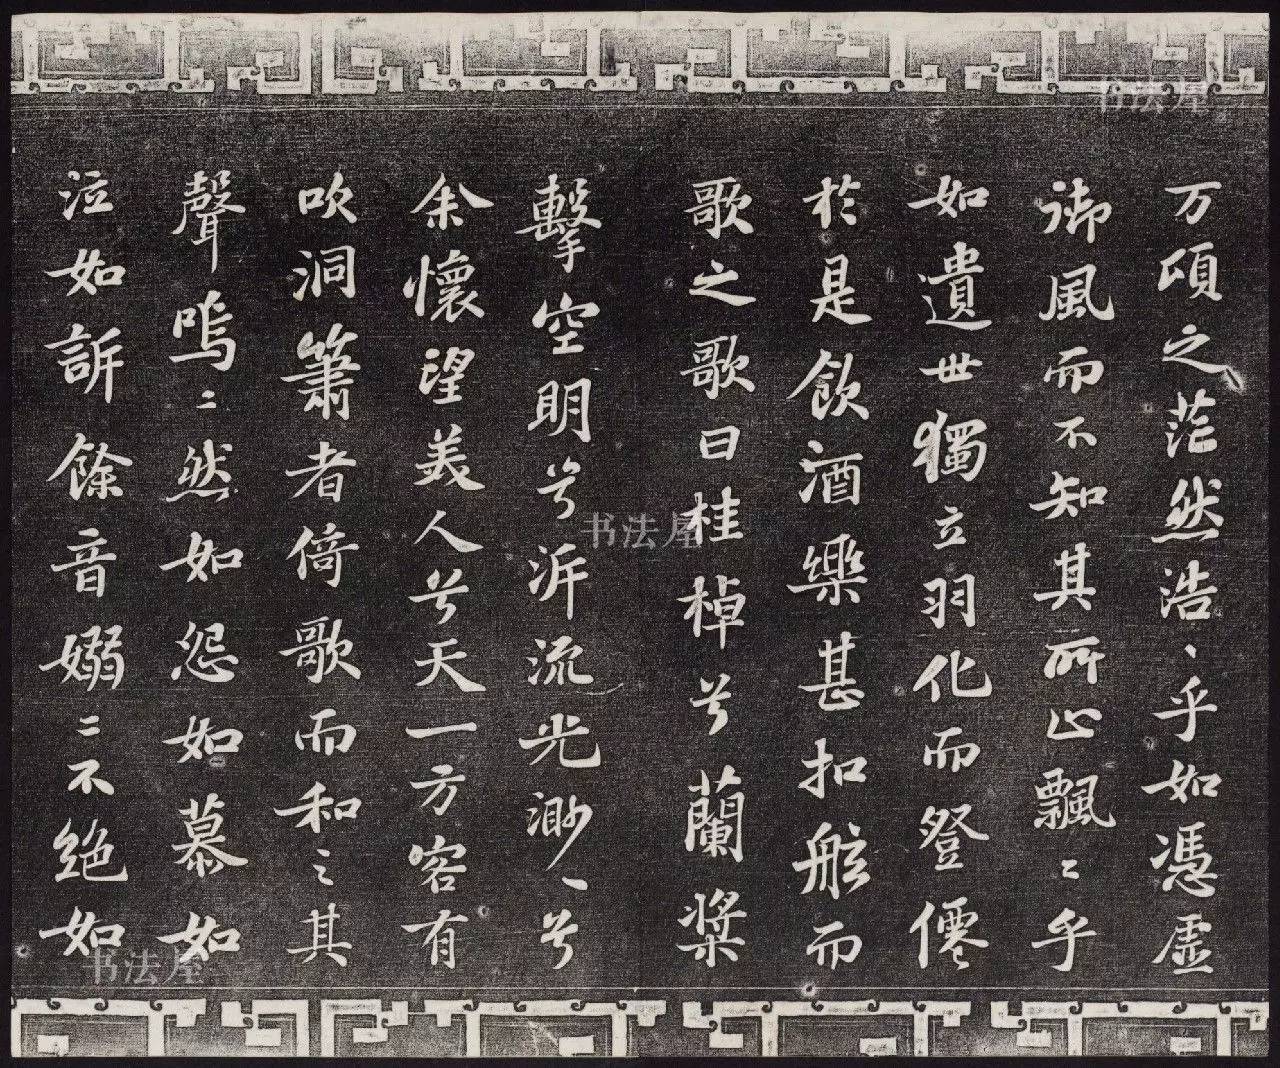 万頃之茫然浩、乎如馮虛
御風而不知其所止飄〻乎
如遺世獨立羽化而登僊
於是飲酒樂甚扣舷而
歌之歌曰桂棹兮蘭槳
擊空明兮泝流光渺、兮
余懷望美人兮天一方客有
吹洞簫者倚歌而和之其
聲嗚〻然如怨如慕如
泣如訴餘音嫋〻不絕如
书法屋
书法屋
书法屋